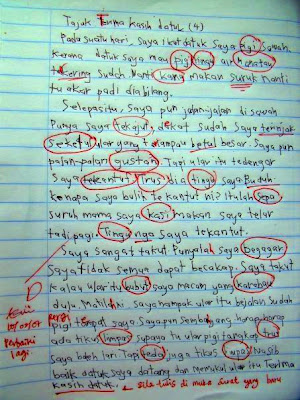 Tajuk Terima Kasih datuk (4)
Pada suatu hari, saya ikut datuk saya Pigi sawah.
Kerana datuk saya mau pigi tinguk air
kering sudah. Nanti kang makan suruk nanti
tu akar padi dia bilang.
Selepas itu, saya pun jalan-jalan di sawah
Punya saya tekajut, dekat sudah saya ternijak
seketul ular yang terlampau betul besar. Saya pun
palan-palan gustan Tapi ular itu tedengar
saya tekantut trus dia tingu saya. Butuh
kenapa saya bulih tekantut ni? Itulah sepa
suruh mama saya kasi makan saya telur
tadi pagi. Tingu nga saya tekantut.
Saya sangat takut. Punyalah saya Degagar
saya tidak semun dapat becakap. Saya takut
kalau ular itu bubut saya macam yang karabau
dulu. Matilah. Saya nampak ular itu bejalan sudah
pigi tempat saya. Saya pun sembayang harap-harap
ada tikus limpas supaya tu ular pigi tangkap trus
saya buleh lari. Tapi teda juga tikus limpas. Nasib
baik datuk saya datang dan memukul ular itu terima
kasih datuk.
sila tulis di muka surat yang baru
10/05/07
Perbaiki
lagi.